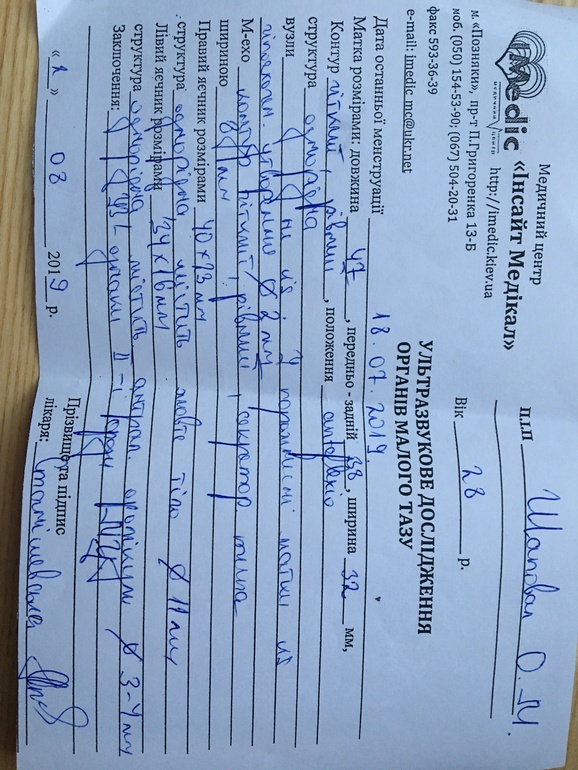 Медичний центр
«Інсайт Медікал»
iMedic
МЕДИЧНИЙ ЦЕНТР
http://imedic.kiev.ua
м. «Позняки», пр-т П.Григоренка 13-Б
моб. (050) 154-53-90; (067) 504-20-31
факс 593-36-39
e-mail: imedic_mc@ukr.net
П.І.П Шаповал О.М
Вік 28 р.
УЛЬТРАЗВУКОВЕ ДОСЛІДЖЕННЯ
ОРГАНІВ МАЛОГО ТАЗУ
Дата останньої менструації 18.07.2019.
Матка розмірами: довжина 47, передньо - задній 38, ширина 32 мм,
Контур чіткий, рівний, положення
структура однорідна
вузли
утворення ø 2 мм
М-ехо контур чіткий, рівний,
шириною 8 мм
Правий яєчник розмірами 40 х 23 мм
структура однорідна містить жовте тіло ø 11 мм
Лівий яєчник розмірами 34 х 16 мм
структура однорідна містить антрал. фолікули ø 3-4 мм
Заключення:
« 2 » 08 2019 р.
Прізвище та підпис
лікаря: